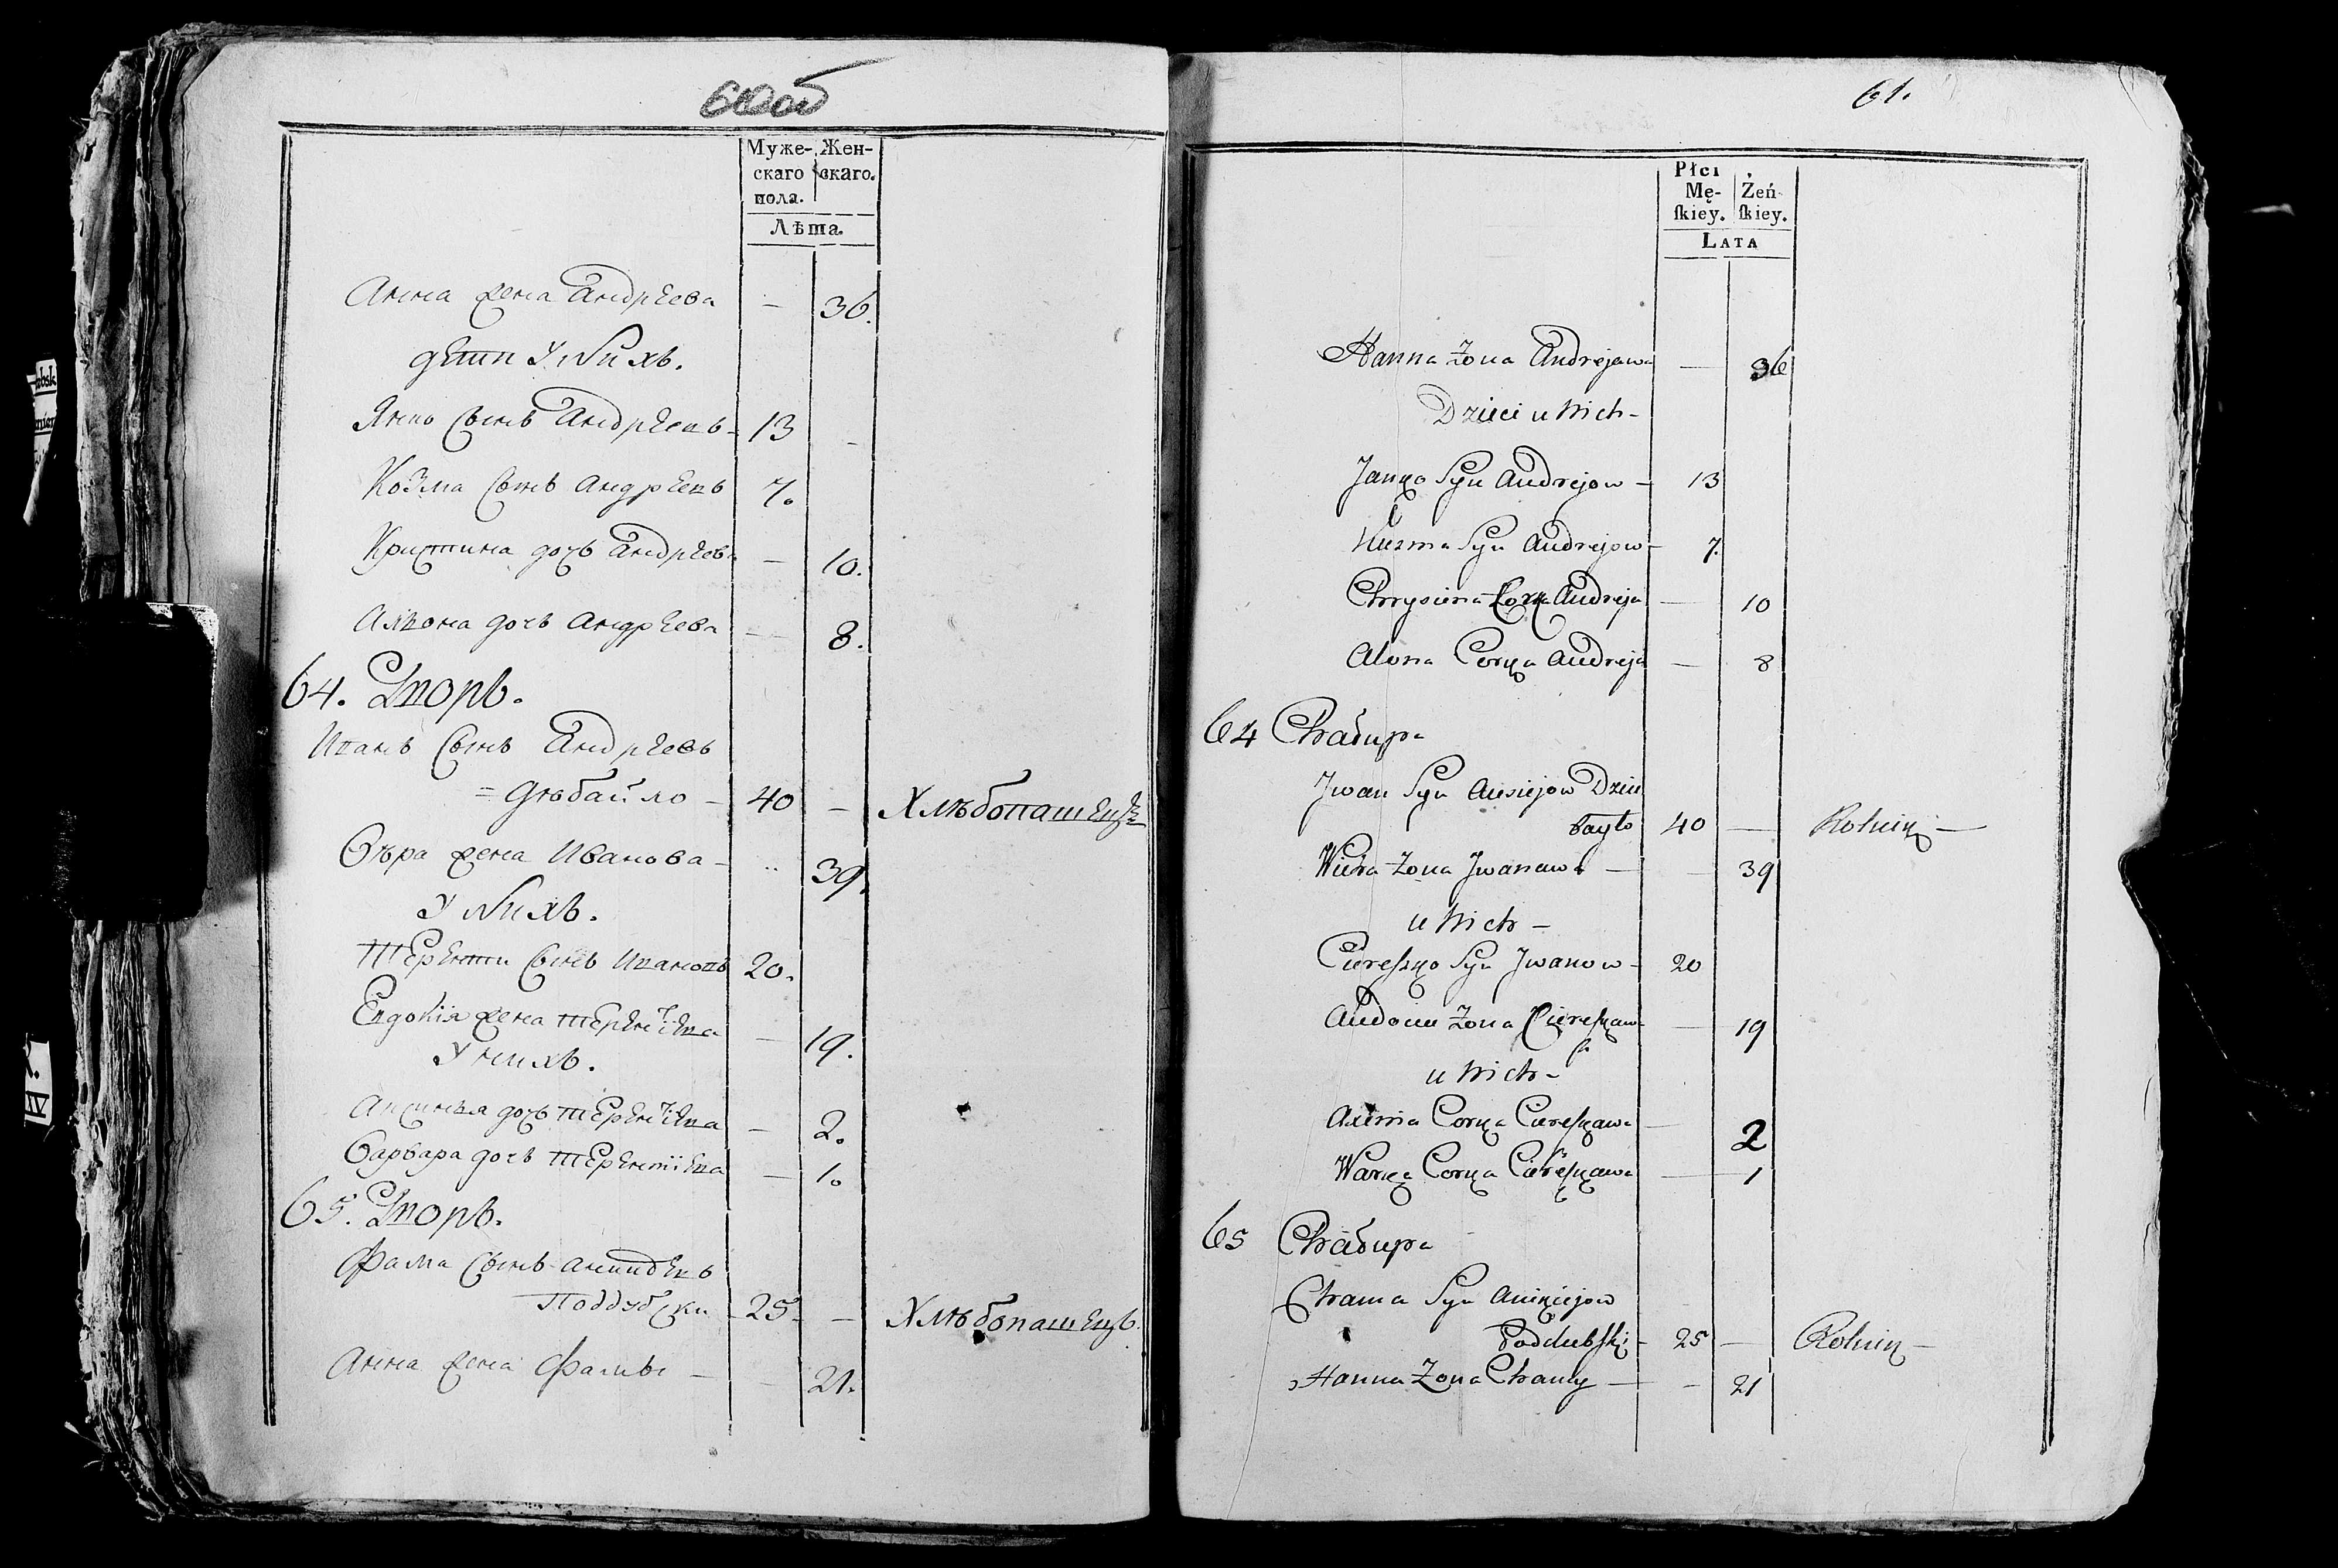 60об
Муже- Жен-
скаго скаго.
пола.
Лѣта.
Анна жена Андрѣева — 36.
дѣти У Нихъ.
Янко Сынъ Андрѣевъ - 13 -
Козма Сынъ Андрѣевъ 7.
Кристина дочь Андрѣева — 10.
Алѣона дочь Андрѣева — 8.
64. Дворъ.
Иванъ Сынъ Андрѣевъ
= Дѣбайло - 40 — Хлѣбопашецъ
Вѣра жена Иванова - 39.
У Нихъ.
Терентіи Сынъ Ивановъ 20.
Евдокія жена Терентіева — 19.
У нихъ.
Аксинья дочь Терентіева — 2.
Варвара дочь Терентіева — 1.
65. Дворъ.
Фама Сынъ
Поддубски 25. — Хлѣбопашецъ.
Анна жена Фамы — 21.
61.
Płci
Mę- Żeń-
ſkiey. ſkiey.
LATA
Hanna Zona Andrejawa — 36
Dzieci u Nich -
Janko Syn Andrejow - 13
Kuzma Syn Andrejow - 7.
Chrysina Corka Andreja — 10
Alona Corka Andreja — 8
64 Chałupa
Jwan Syn Dzie
bayło 40 — Rolnik —
Wiera Zona Jwanawa — 39
u Nich —
Ciereszko Syn Jwanow - 20
Audocia Zona Ciereszkawa — 19
u Nich -
Axinia Corka Ciereszkawa — 2
Warka Corka Ciereszkawa — 1
65 Chałupa
Chama Syn Anikiejow
Poddubſki - 25 — Rolnik —
Hanna Zona Chamy — 21